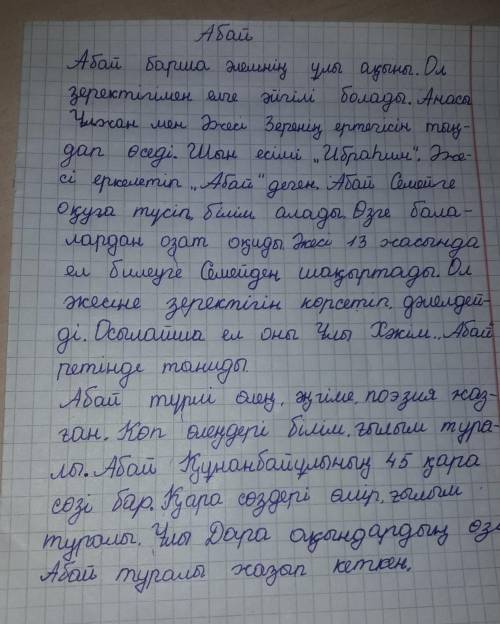 Абай
Абай барша әлемнің ұлы ақыны. Ол
зеректігімен елге әйгілі болады. Анасы
Ұлжан мен Әжесі Зеренің ертегісін тың-
дап өседі. Шын есімі „Ибраһим". Әже-
сі еркелетіп „Абай" деген. Абай Семейге
оқуға түсіп, білім алады. Өзге бала-
лардан озат оқиды. Әкесі 13 жасында
ел билеуге Семейден шақыртады. Ол
әкесіне зеректігін көрсетіп, дәлелдей-
ді. Осылайша ел оны Ұлы Хәкім „Абай
ретінде таниды.
Абай түрлі өлең, әңгіме, поэзия жаз-
ған. Көп өлеңдері білім, ғылым тура-
лы. Абай Құнанбайұлының 45 қара
сөзі бар. Қара сөздері өмір, ғылым
туралы. Ұлы Дара ақындардың өзі
Абай туралы жазып кеткен.